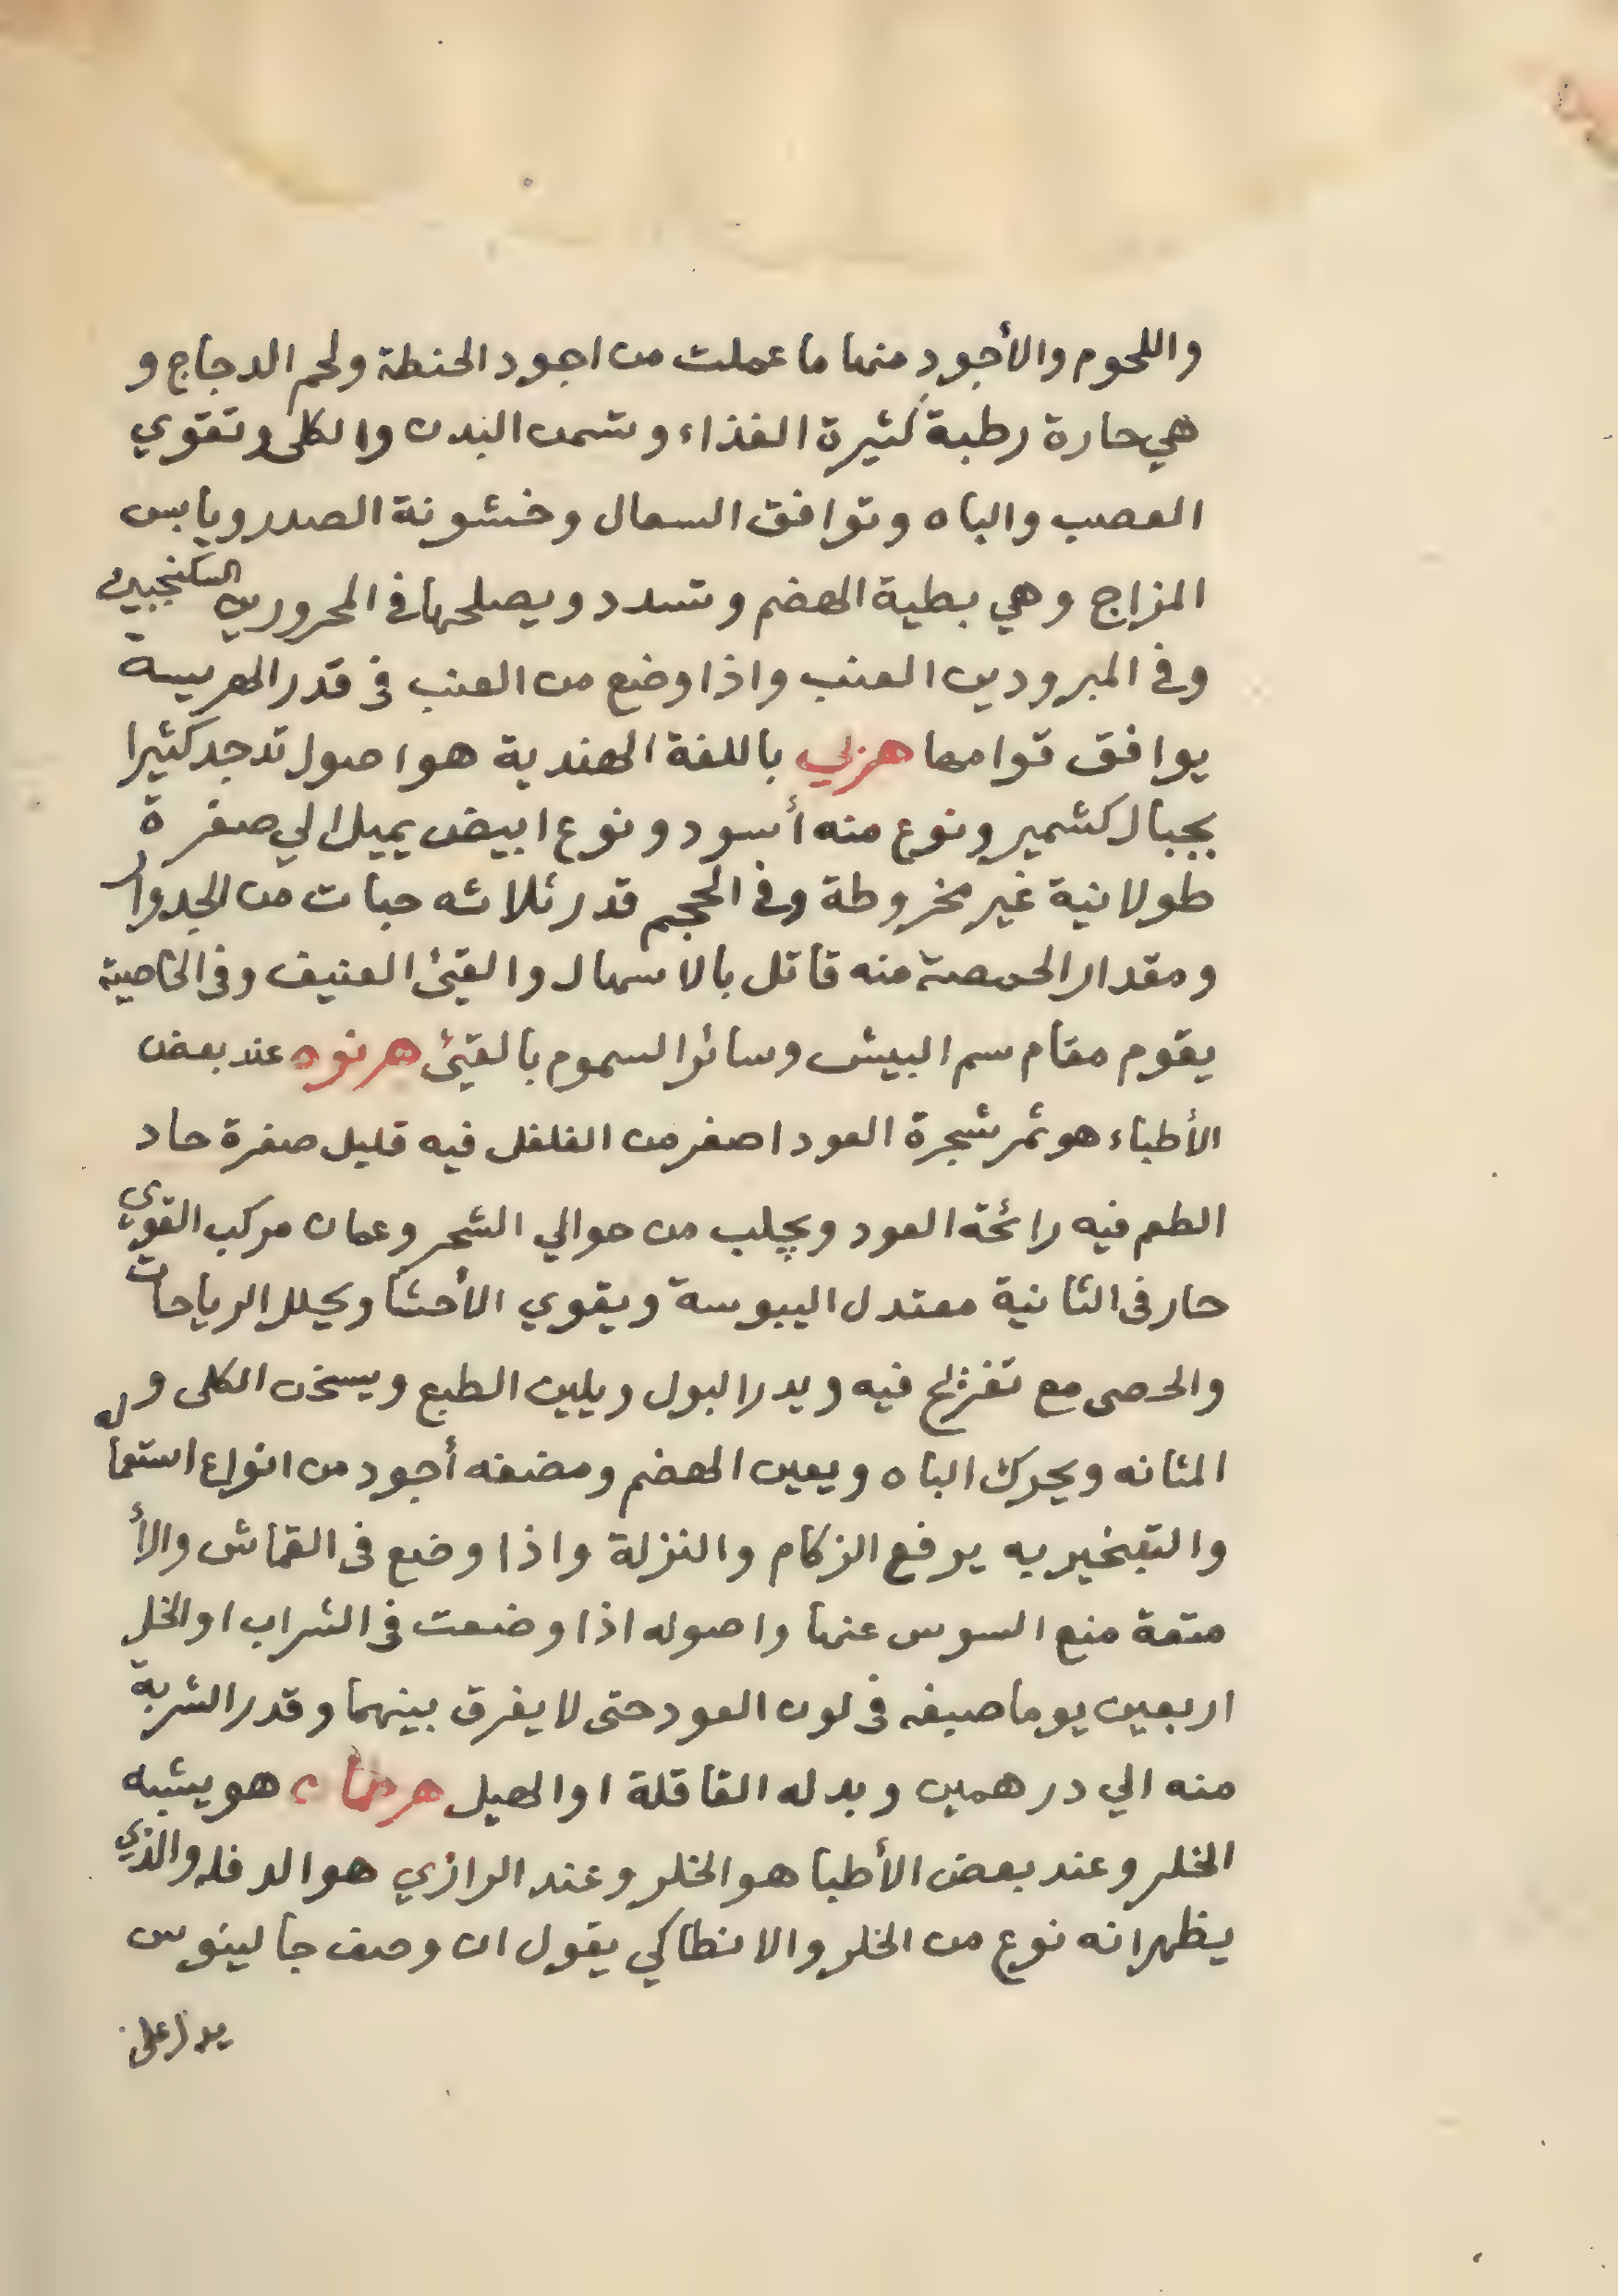 واللحوم والأجود منها ما عملت من اجود الحنطة ولحم الدجاج و
هي حارة رطبة كثيرة الغذاء وتسمن البدن والكلى وتقوي
العصب والباه وتوافق السعال وخشونة الصدر ويابس
المزاج وهي بطية الهضم وتسدد ويصلحها في المحرورين السكنجبين
وفي المبرودين العنب واذا وضع من العنب في قدر الهريسة
يوافق قوامها هزبي باللغة الهندية هو اصول تدجد كثيرا
بجبال كشمير ونوع منه أسود ونوع ابيض يميل الي صفرة
طولانية غير مخروطة وفي الحجم قدر ثلاثه حبات من الجدوار
ومقدار الحمصة منه قاتل بالاسهال والقيئ العنيف وفي الخاصية
يقوم مقام سم البيش وسائر السموم بالقيئ هرنوه عند بعض
الأطباء هو ثمر شجرة العود اصغر من الفلفل فيه قليل صفرة حاد
الطعم فيه رائحة العود ويجلب من حوالي الشحر وعمان مركب القوي
حار في الثانية معتدل اليبوسة ويقوي الأحشا ويحلل الرياحات
والحصى مع تفريح فيه ويدر البول ويلين الطبع ويسخن الكلى و
المثانه ويحرك الباه ويعين الهضم ومضغه أجود من انواع استعماله
والتبخير به يرفع الزكام والنزلة واذا وضع في القماش والأ
متعة منع السوس عنها واصوله اذا وضعت في الشراب او الخل
اربعين يوما صبغه في لون العود حتى لا يفرق بينهما وقدر الشربة
منه الي درهمين وبدله القاقلة او الهيل هرطمان هو يشبه
الخلر وعند بعض الأطبا هو الخلر وعند الرازي هو الدفله والذي
يظهر انه نوع من الخلر والانطاكي يقول ان وصف جالينوس
يدل على